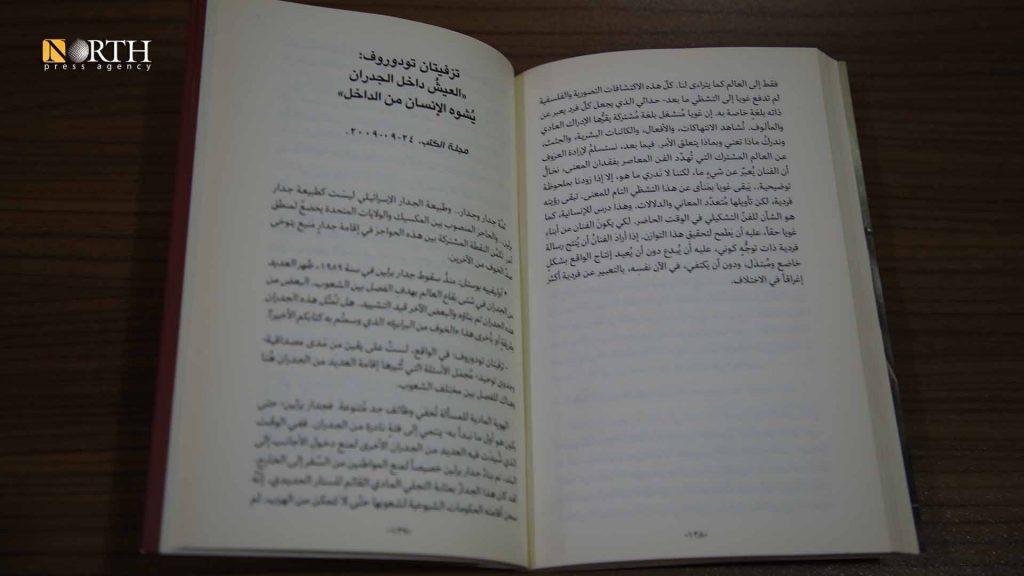 NORTH
press agency
فقط إلى العالم كما يتراءى لنا. كلّ هذه الاكتشافات التصورية والفلسفية
لم تدفع غويا إلى التشظي ما بعد- حداثي الذي يجعل كلّ فرد يعبر عن
ذاته بلغة خاصة به. إن غويا مُنشغل بلغة مُشتركة يقرُّها الإدراك العادي
والمألوف. نُشاهد الانتهاكات، والأفعال، والكائنات البشرية، والجثث،
وندركُ ماذا تعني وبماذا يتعلق الأمر. فيما بعد، نستسلمُ لإرادة العزوف
عن العالم المشترك التي تُهدّد الفن المعاصر بفقدان المعنى، نخالُ
أن الفنان يُعبّر عن شيءٍ ما، لكننا لا ندري ما هو، إلا إذا زودنا بملحوظة
توضيحية.. يَبقى غويا بمنأى عن هذا التشظي التام للمعنى. تبقى رؤيته
فردية، لكن تأويلها مُتعدّد المعاني والدلالات. وهذا درس للإنسانية، كما
هو الشأن للفنّ التشكيلي في الوقت الحاضر. لكي يكون الفنان من أبناء
غويا حقاً، عليه أن يطمح لتحقيق هذا التوازن. إذا أراد الفنانُ أن يُنتج رسالة
فردية ذات توجُّهٍ كوني، عليه أن يُبدع دون أن يُعيد إنتاج الواقع بشكلٍ
خاضع ومُبتذل، ودون أن يكتفي، في الآن نفسه، بالتعبير عن فردية أكثرُ
إغراقاً في الاختلاف.
«١٣٨»
تزفيتان تودوروف:
«العيشُ داخل الجدران
يُشوه الإنسان من الداخل»
مجلة الكتب، ٢٤-٠٩-٢٠٠٩.
ثمّة جدار وجدار.. وطبيعة الجدار الإسرائيلي ليست كطبيعة جدار
برلين، والحاجز المنصوب بين المكسيك والولايات المتحدة يخضعُ لمنطق
النقطة المشتركة بين هذه الحواجز في إقامة جدارٍ منيع
الخوف من الآخرين.
• أوليفييه بوستل: منذُ سقوط جدار برلين في سنة ١٩٨٩، ظهر العديد
من الجدران في شتى بقاع العالم بهدف الفصل بين الشعوب. البعض من
هذه الجدران تم بناؤه والبعض الآخر قيد التشييد. هل تُمثّل هذه الجدران
بطريقةٍ أو بأخرى هذا «الخوف من البرابرة» الذي وسمتُم به كتابكم الأخير؟
- تزفيتان تودوروف: في الواقع، لستُ على يقين من مَدى مصداقية،
وجدوى توحيد، مُجمل الأسئلة التي تُثيرها إقامة العديد من الجدران هُنا
وهناك للفصل بين مختلف الشعوب.
الهوية المادية للمسألة تُخفي وظائف جد مُتنوعة. فجدار برلين، حتى
يكون هو أول ما نبدأ به، ينتمي إلى فئة نادرة من الجدران. ففي الوقت
الذي شُيدت فيه العديد من الجدران الأخرى لمنع دخول الأجانب إلى
البلد، تم بناءُ جدار برلين خصيصاً لمنع المواطنين من السفر إلى الخارج.
لقد كان هذا الجدارُ بمثابة التجلي المادي القائم للستار الحديدي،
سجن أقامته الحكومات الشيوعية لشعوبها حتّى لا تتمكن من الهرب. لم
«١٣٩»